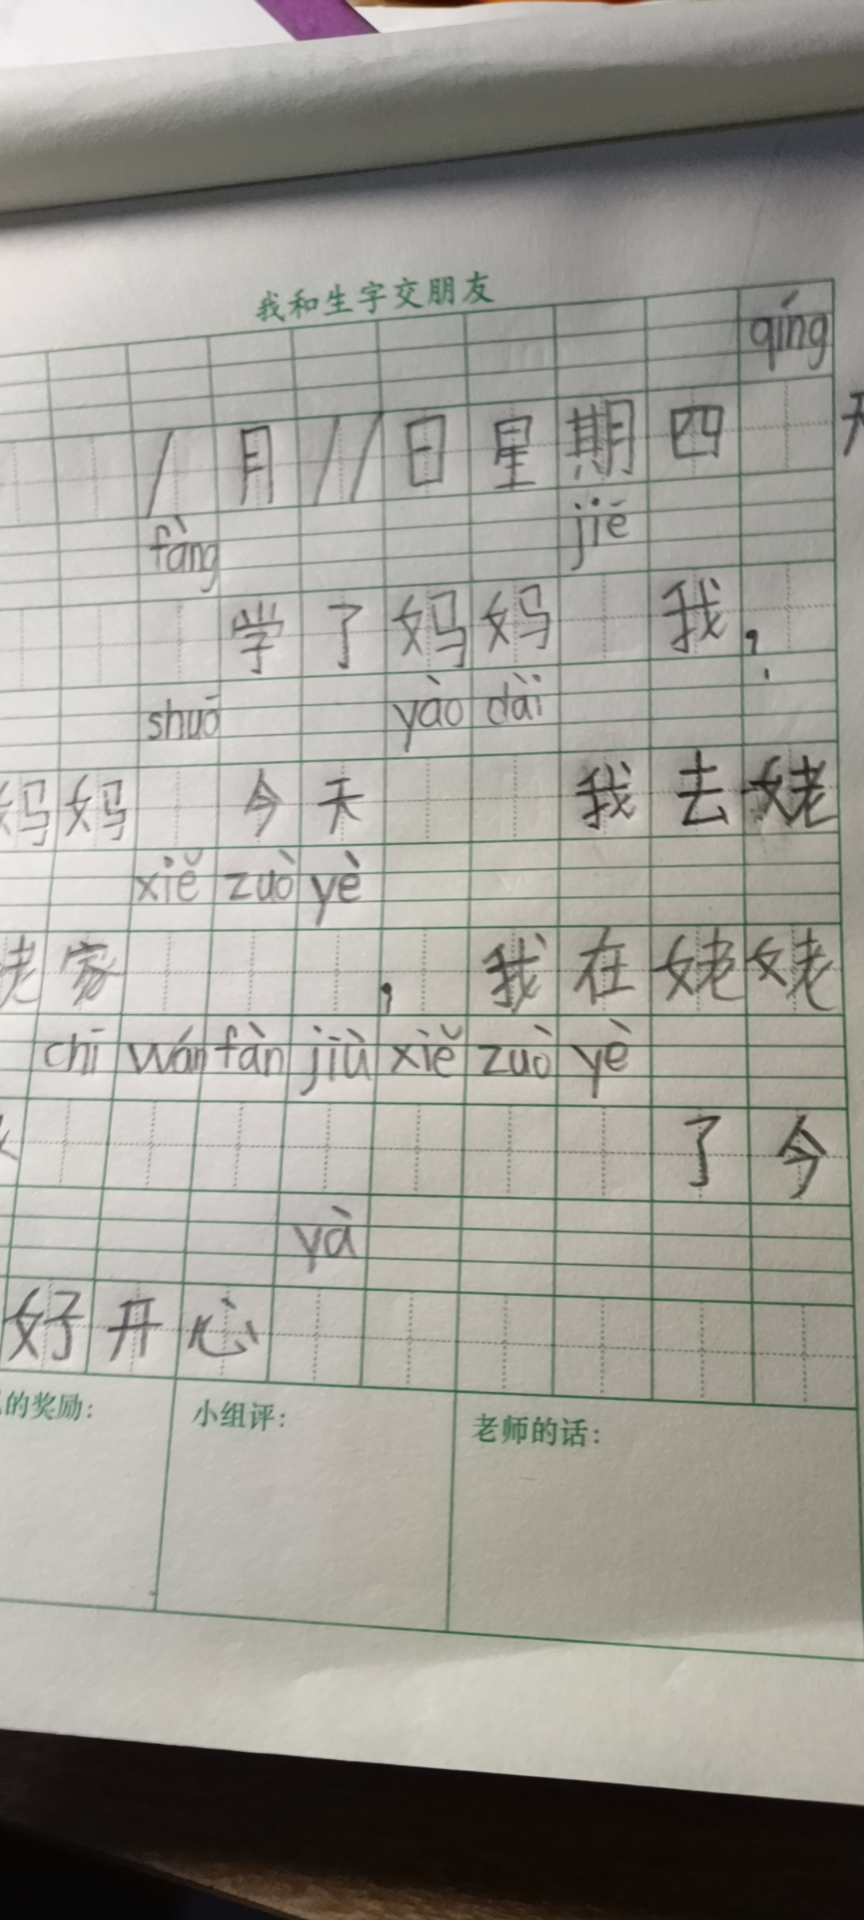 我和生字交朋友
qíng
1月11日星期四 天
fàng jiē
学了妈妈 我，
shuō yào dài
妈妈 今天 我去姥
xiě zuò yè
姥家 ，我在姥姥
chī wán fàn jiù xiě zuò yè
了今
yà
好开心
的奖励：
小组评：
老师的话：